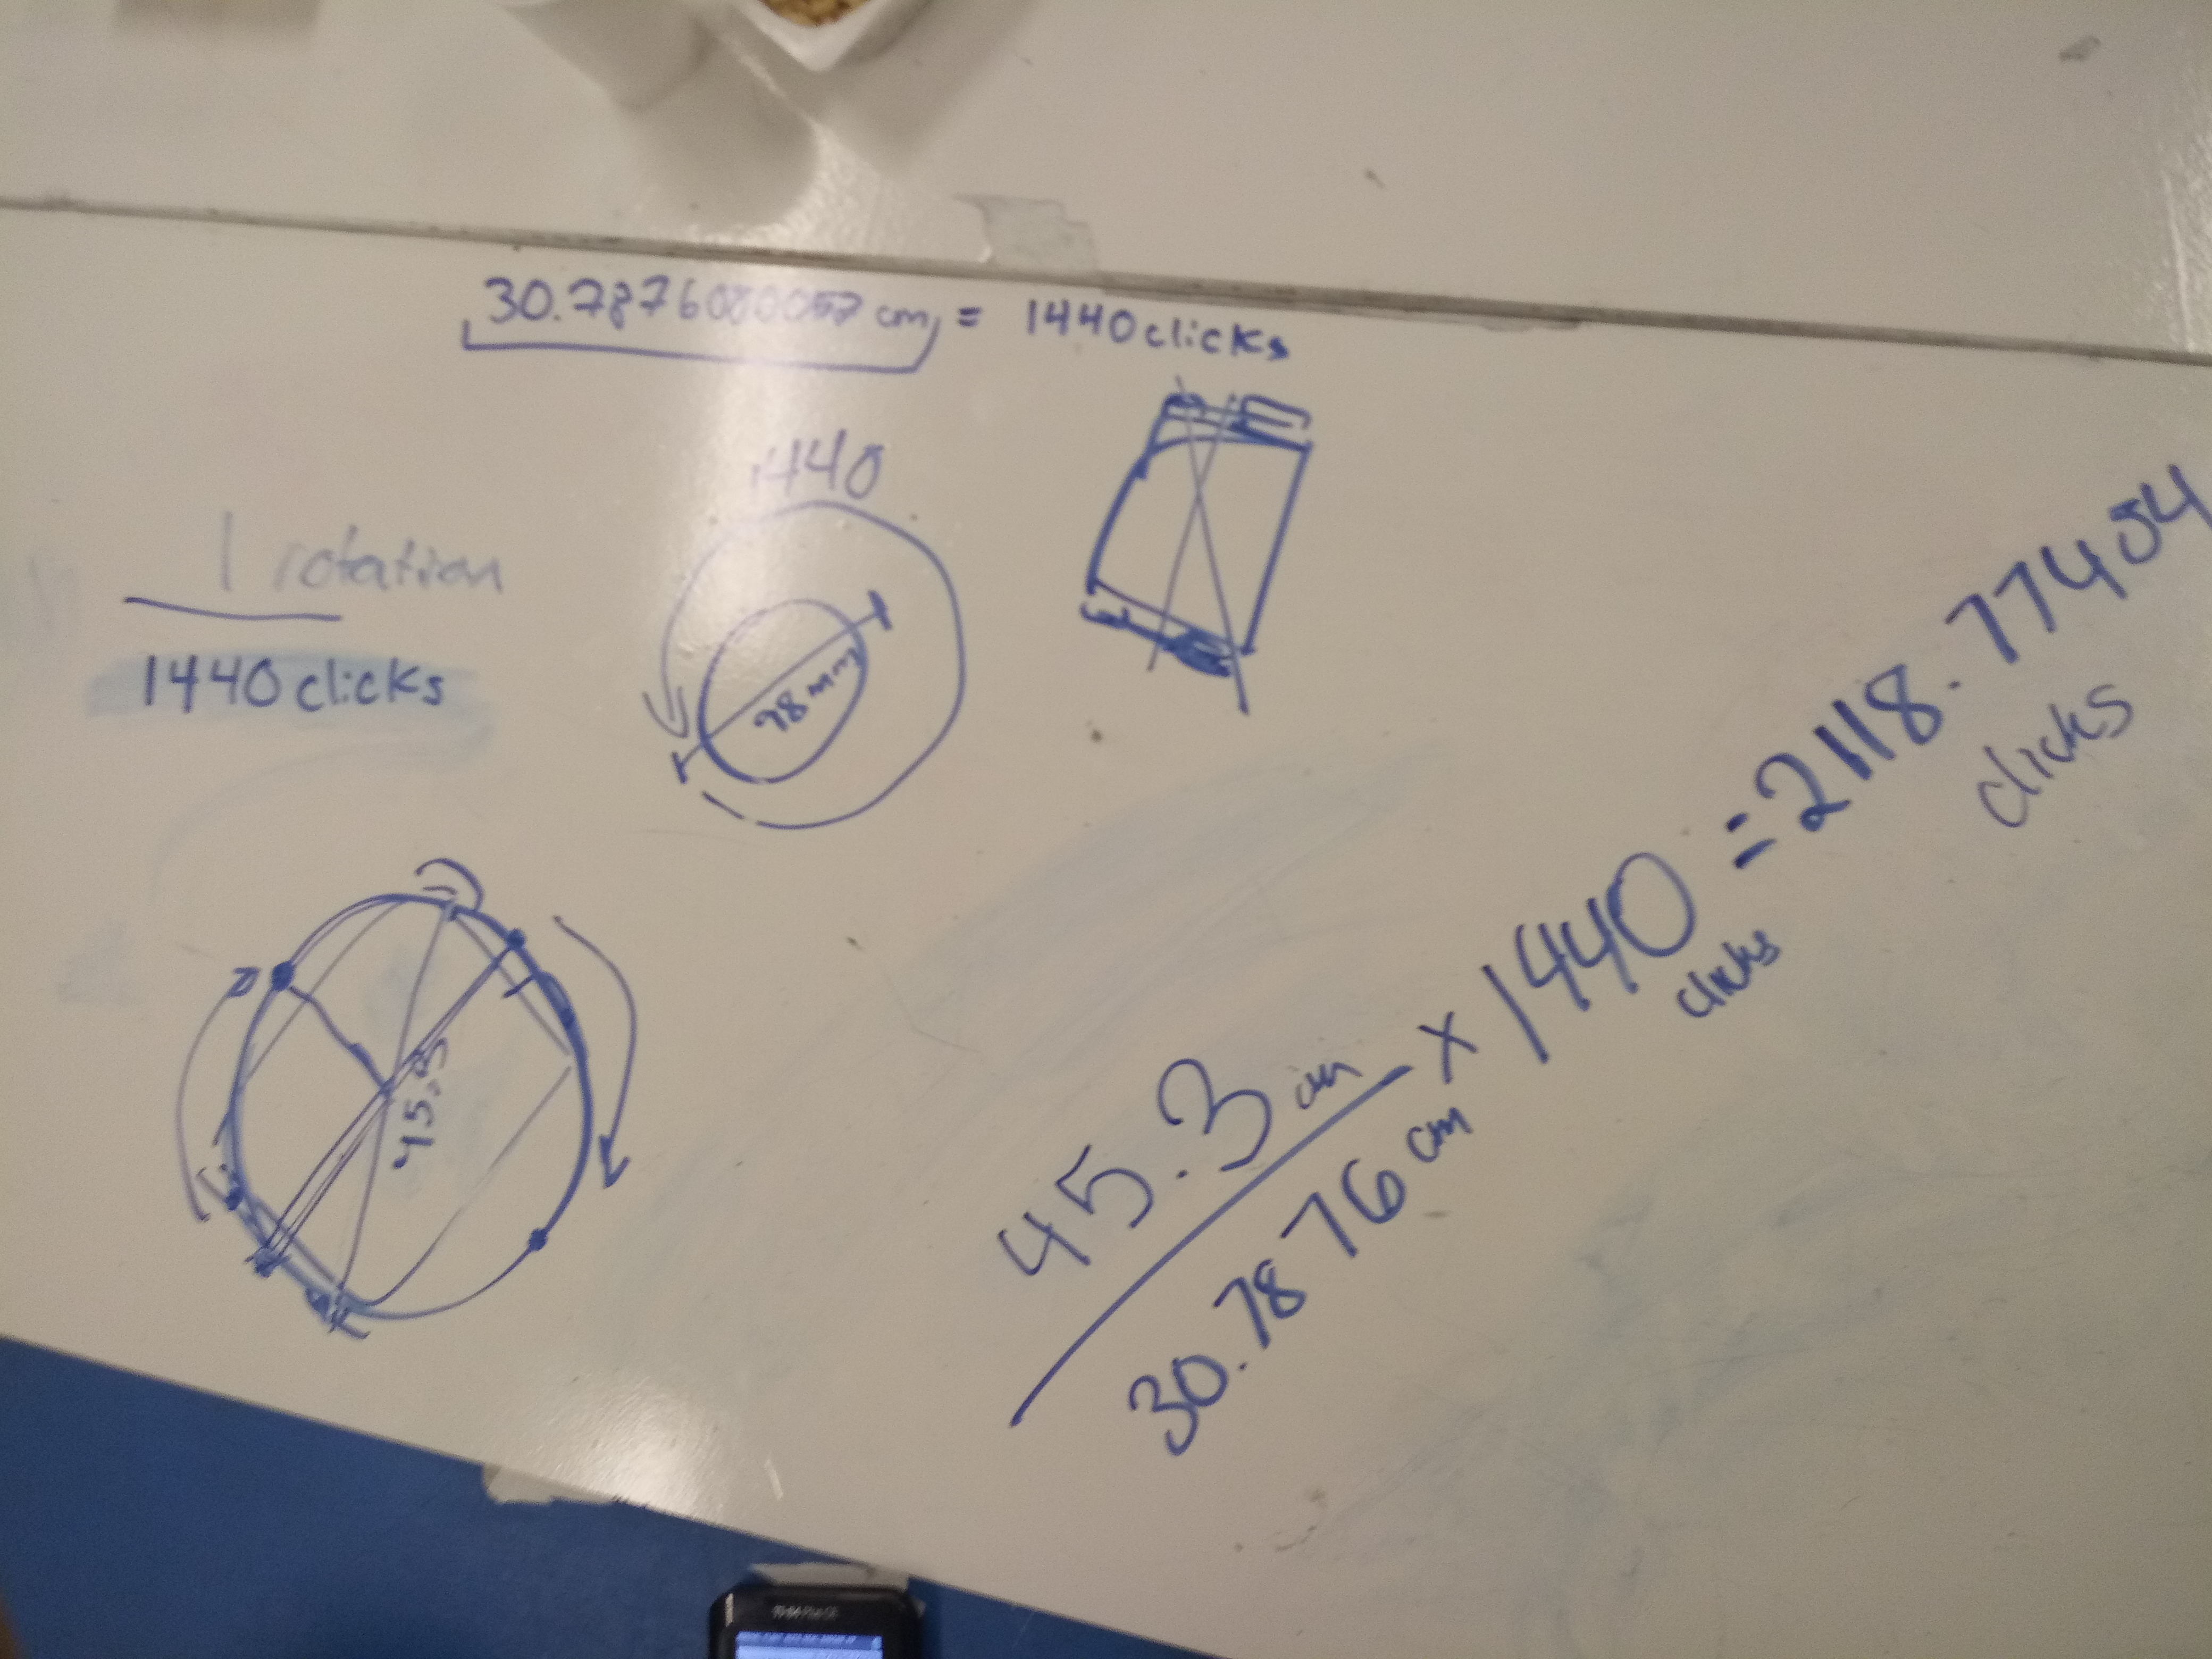 30.7876000050 cm, = 1440 clicks
1 rotation
1440 clicks
1440
98 mm
45.3
45.3 cm
30.7876 cm
x 1440 clicks
= 2118.77454
clicks